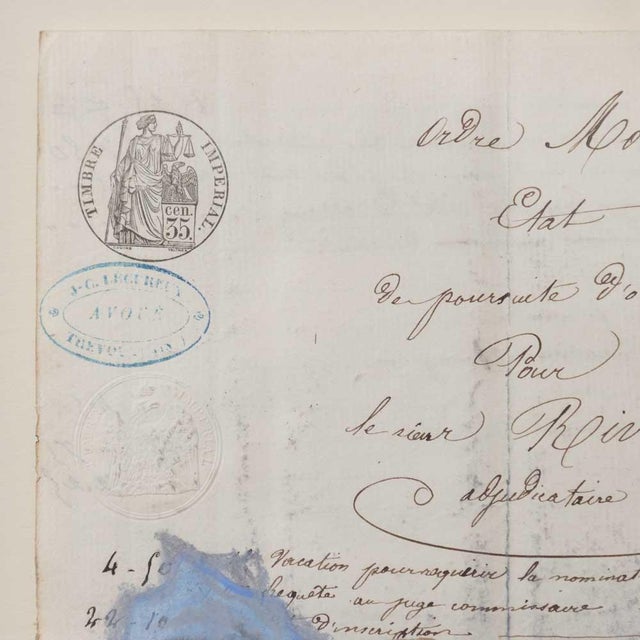 TIMBRE IMPERIAL.
cen.
35.
J-C. LECUREUX
AVOUÉ
Ordre
Etat
de poursuite d'o
Pour
le sieur Riv
adjudicataire
4-50 Vacation pour requérir la nominat
Requête au juge commissaire
22-10 d'inscription